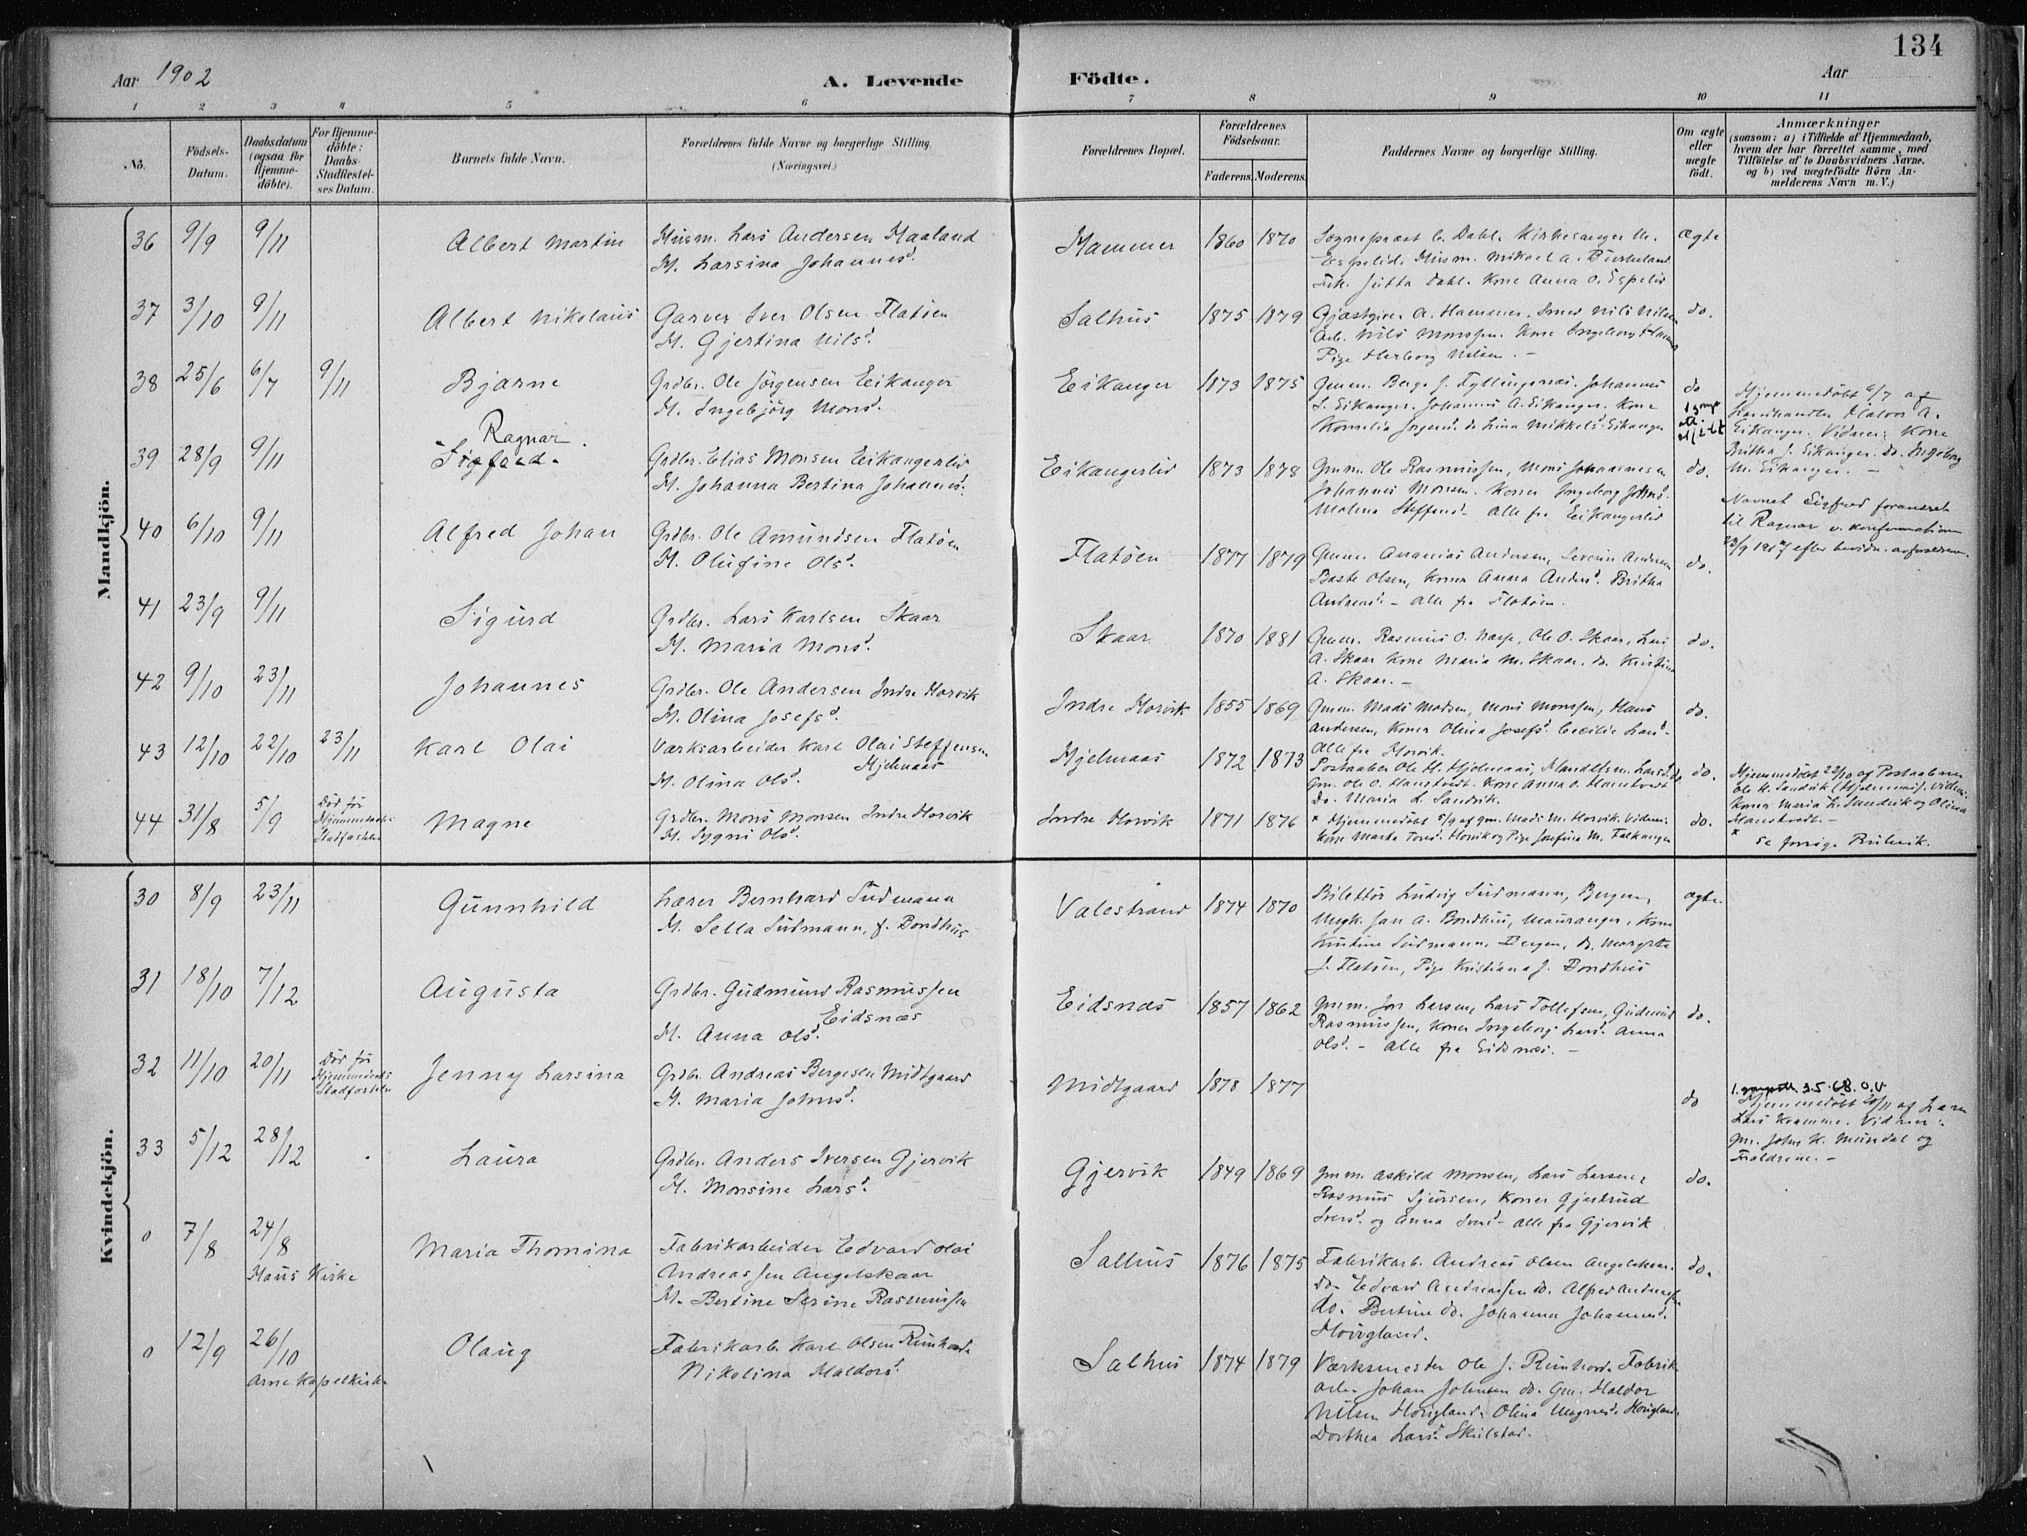 134
Aar 1902
A. Levende
Födte.
Aar
1 2 3 4 5 6 7 8 9 10 11
No.
Födsels-Datum.
Daabsdatum (ogsaa for Hjemmedöbte).
For Hjemmedöbte: Daabs-Stadfæstelses Datum.
Barnets fulde Navn.
Forældrenes fulde Navne og borgerlige Stilling. (Næringsvei.)
Forældrenes Bopæl.
Forældrenes Födselsaar.
Faderens. Moderens.
Faddernes Navne og borgerlige Stilling.
Om ægte eller uægte födt.
Anmærkninger
(saasom: a) i Tilfælde af Hjemmedaab, hvem der har forrettet samme, med Tilföielse af to Daabsvidners Navne. og b) ved uægtefödte Börn Anmelderens Navn m. V.)
Mandkjön.
36 9/9 9/11 Albert Martin Husm. Lars Andersen Haaland
H. Larsina Johannesd. Hammer 1860 1870 Sognepræst C. Dahl. Kirkesanger M.
Espelid. Husm. Mikael A. Birkeland
Frk. Jutta Dahl. Kone Anna O. Espelid ægte
37 3/10 9/11 Albert Nikolaus Garver Iver Olsen Flatöen
H. Gjertina Nilsd. Salhus 1875 1879 Gjæstgiver A. Hammer. Smed Nils Nilsen
Arb. Nils Monssen. Kone Ingeborg Hammer
Pige Herborg Nilsen. — do.
38 25/6 6/7 9/11 Bjarne Grdbr. Ole Jörgensen Eikanger
H. Ingebjörg Monsd. Eikanger 1873 1875 Gmm. Berge J. Fyllingsnæs. Johannes
J. Eikanger. Johannes A. Eikanger. Kone
Kornelia Jörgensd. do Lina Mikkelsd. Eikanger do
Hjemmedöbt 6/7 af
Landhandler Halvor A.
Eikanger. Vidner: Kone
Britha J. Eikanger. do. Ingeborg
M. Eikanger. —
39 28/9 9/11 Ragnar.
Sigfred. Grdbr. Elias Monsen Eikangerlid
H. Johanna Bertina Johannesd. Eikangerlid 1873 1878 Gmm. Ole Rasmussen, Mons Johannesen
Johannes Monsen. Koner Ingeborg Johnsd.
Malena Steffensd. alle fra Eikangerlid do.
Navnet Sigfred forandret
til Ragnar v. konfirmation
23/9 1917 efter
40 6/10 9/11 Alfred Johan Grdbr. Ole Amundsen Flatöen
H. Olufine Olsd. Flatöen 1877 1879 Gmm. Ananias Andersen, Severin Andersen
Baste Olsen, Koner Anna Andersd. Britha
Andersd. — alle fra Flatöen. do.
41 23/9 9/11 Sigurd Grdbr. Lars Karlsen Skaar
H. Maria Monsd. Skaar 1870 1881 Gmm. Rasmus O. , Ole O. Skaar, Lars
A. Skaar Kone Maria M. Skaar. do. Kristina
A. Skaar. — do.
42 9/10 23/11 Johannes Grdbr. Ole Andersen Indre Horvik
H. Olina Josefsd. Indre Horvik 1855 1869 Gmm. Mads Madsen, Mons Monssen, Hans
Andersen, Koner Olina Josefsd. Cecilie Larsd.
alle fra Horvik. do.
43 12/10 22/10 23/11 Karl Olai Værksarbeider Karl Olai Steffensen
Hjelmaas
H. Olina Olsd. Hjelmaas 1872 1873 Postaabner Ole H. Hjelmaas, Handelsm.
Gm. Ole O. Hanstvedt. Kone Anna O. Hanstvedt
do. Maria L. Sandvik. do.
Hjemmedöbt 22/10 af Postaabner
Ole H. Sandvik (Hjelmaas). Vidner:
Koner Maria L. Sandvik og Olina
Hanstvedt. —
44 31/8 5/9 Död för
Hjemmedaabs
Stadfæstelse Magne Grdbr. Mons Monsen Indre Horvik
H. Sygni Olsd. Indre Horvik 1871 1876 * Hjemmedöbt 5/9 af gm. Mads M. Horvik. Vidner:
Kone Marta Toresd. Horvik og Pige Josefina M. Falkanger do.
* se forrige Rubrik.
Kvindekjön.
30 8/9 23/11 Gunnhild Lærer Bernhard Sudmann
H. Sella Sudmann, f. Bondhus Valestrand 1874 1870 Billettör Ludvig Sudmann, Bergen,
Ungk. Jan A. Bondhus, Mauranger, Kone
Kristine Sudmann, Bergen, do. Margrete
J. Flatöen, Pige Kristiana J. Bondhus ægte.
31 18/10 7/12 Augusta Grdbr. Gudmund Rasmussen
Eidsnæs
H. Anna Olsd. Eidsnæs 1857 1862 Gmm. Jon Larsen, Lars Tollefsen, Gudmund
Rasmussen, Koner Ingeborg Larsd. Anna
Olsd. — alle fra Eidsnæs. — do.
32 11/10 20/11 Död för
Hjemmedaabs
Stadfæstelse Jenny Larsina Grdbr. Andreas Bergesen Midtgaard
H. Maria Johnsd. Midtgaard 1878 1877 do
3.5.68. O.V.
Hjemmedöbt 20/11 af Lærer
Lars Kvamme. Vidner:
Gm. John K. Mundal og
Forældrene. —
33 5/12 28/12 Laura Grdbr. Anders Iversen Gjervik
H. Monsine Larsd. Gjervik 1849 1869 Gmm. Askild Monsen, Lars Larsen,
Rasmus Sjursen, Koner Gjertrud
Iversd. og Anna Iversd. alle fra Gjervik do.
0 7/8 24/8
Haus Kirke Maria Thomina Fabrikarbeider Edvard Olai
Andreassen Angelskaar
H. Bertine Serine Rasmussen Salhus 1876 1875 Fabrikarb. Andreas Olsen Angelskaar.
do. Edvard Andreassen do. Alfred Andreassen
do. Bertine do. Johanna Johannesd.
Hougland. do.
0 12/9 26/10
Arne Kapelkirke Olaug Fabrikarb. Karl Olsen Runhovd.
Nikolina Haldorsd. Salhus 1874 1879 Værksmester Ole J. Runhovd. Fabrik
arb. Johan Johnsen do. Gm. Haldor
Nilsen Hougland. Olina Magnesd. Hougland.
Dorthea Larsd. Skulstad.